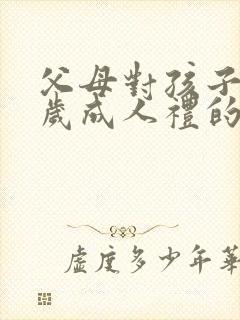 父母對孩子
歲成人禮的
虛度多少年華